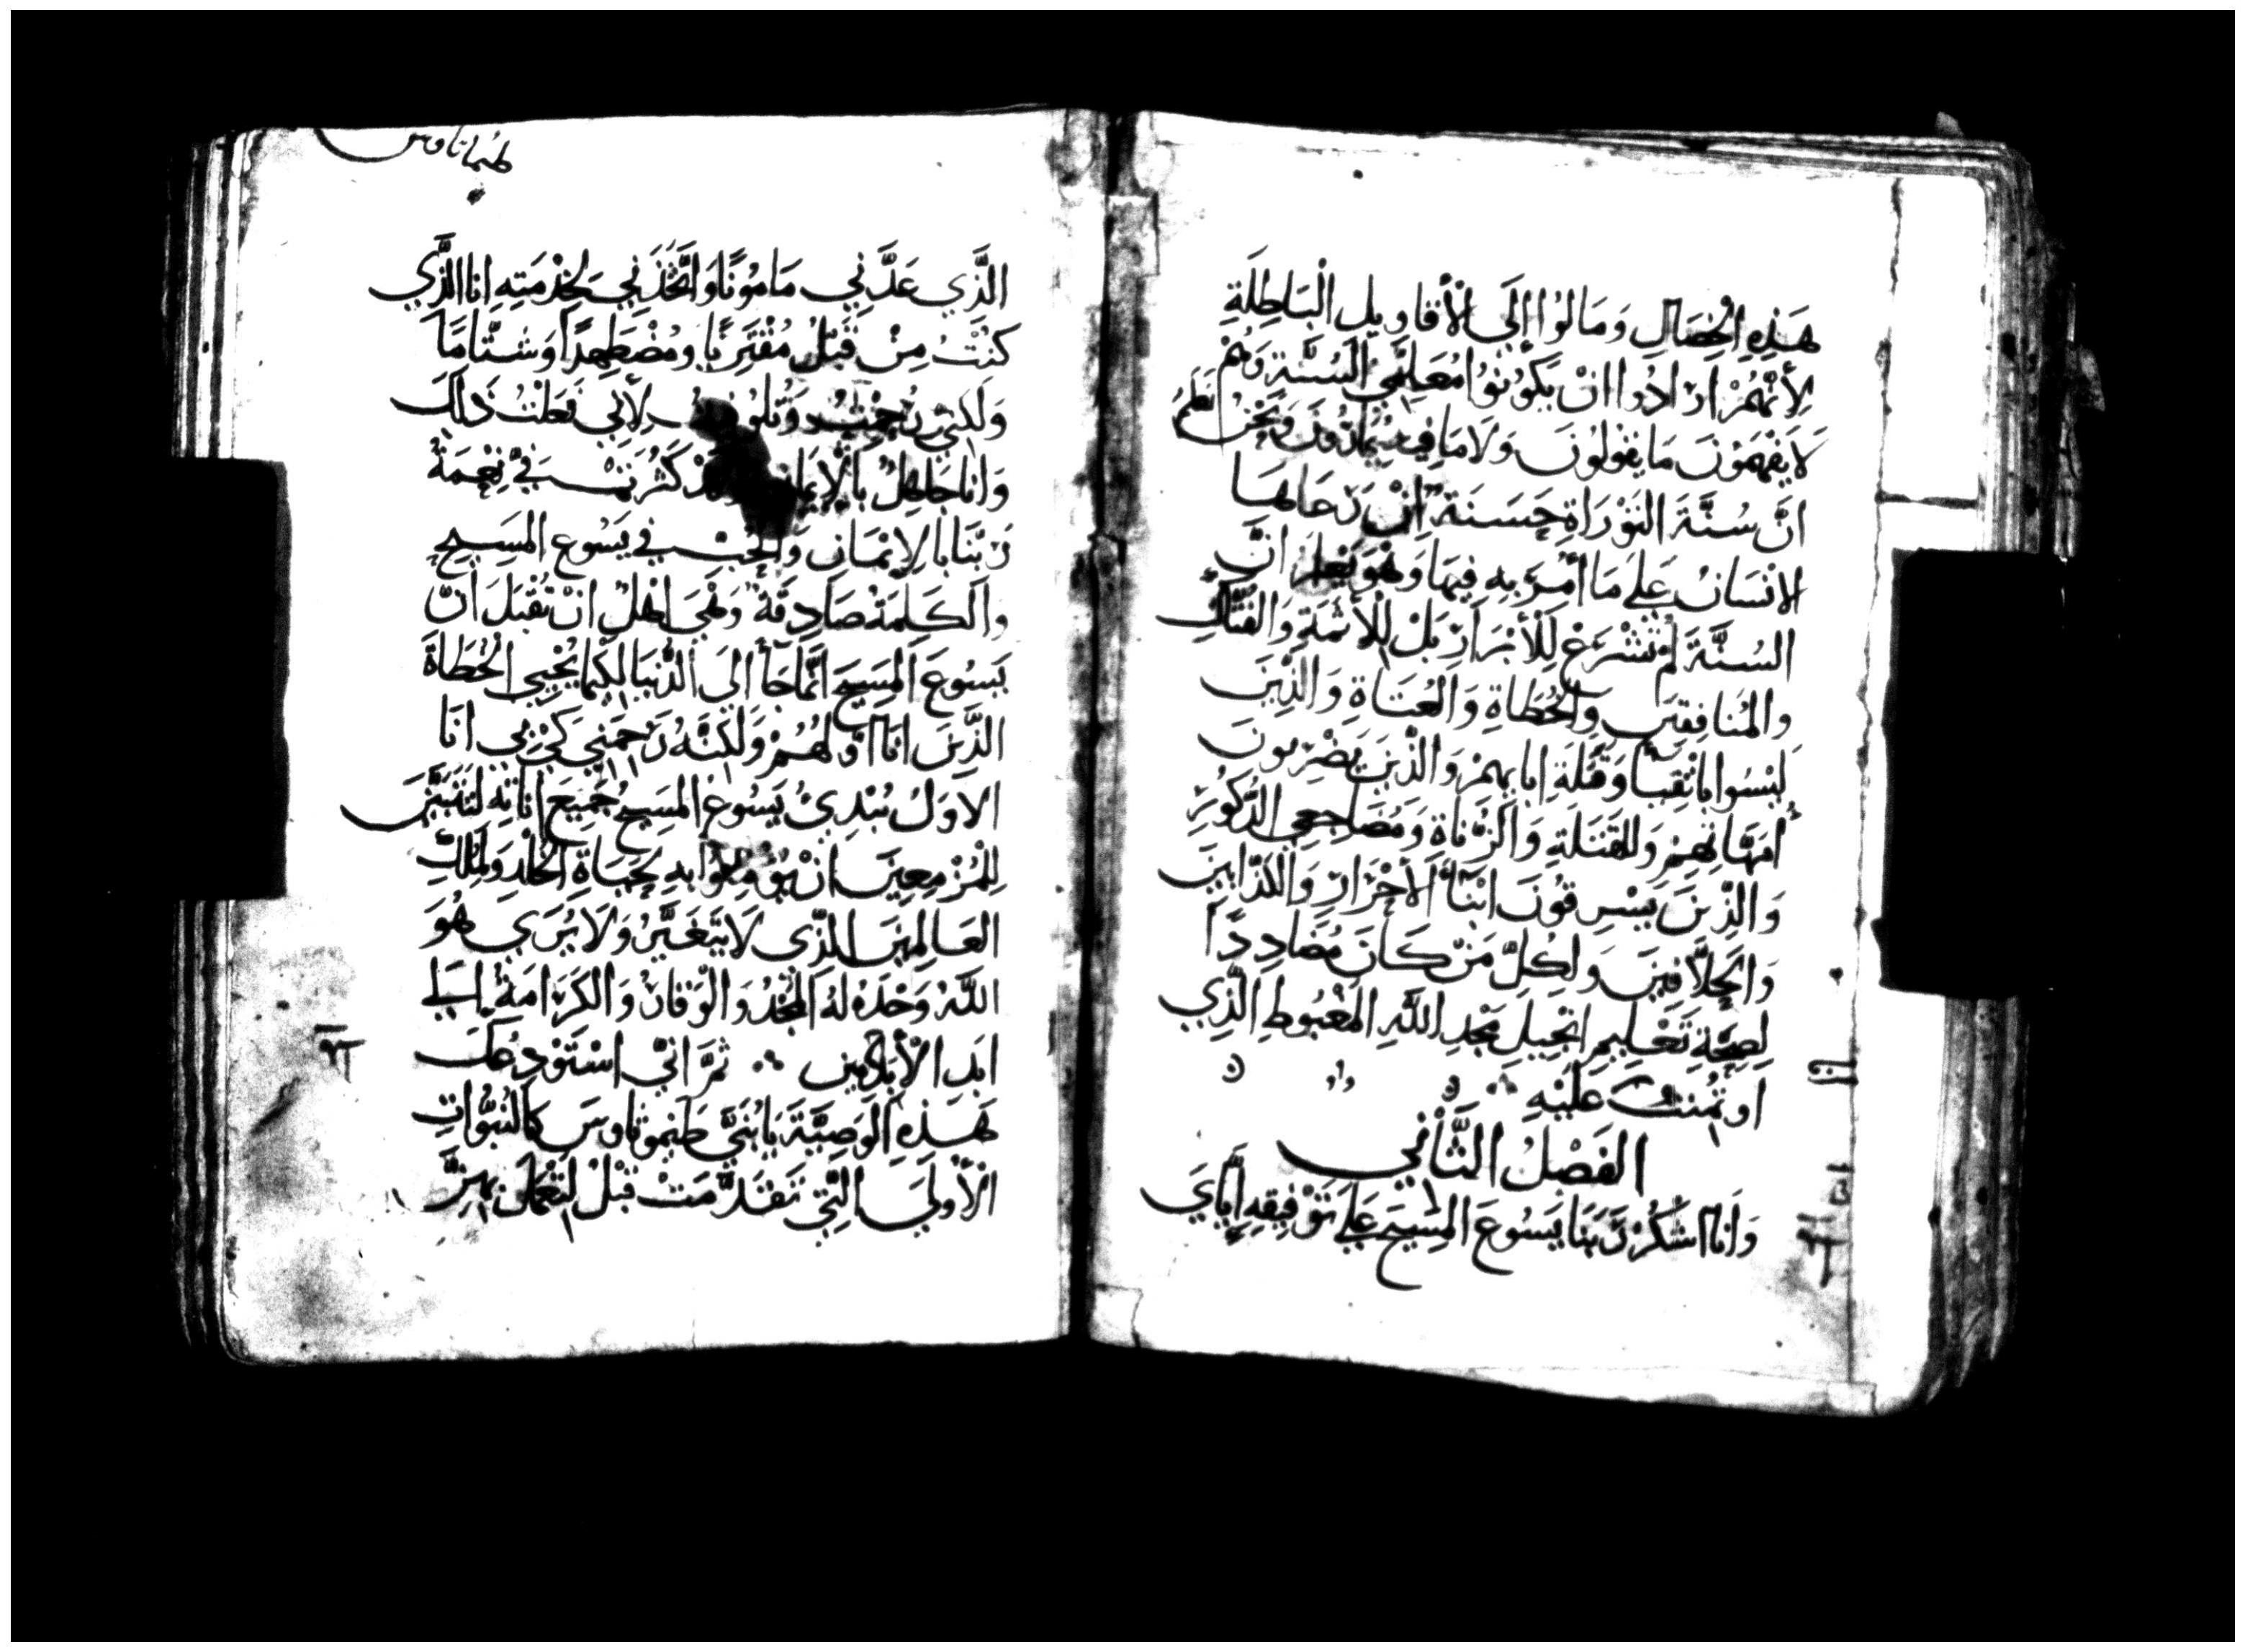 هَذِهِ الْخِصَالِ وَمَالُوْا إِلَى الْأَقَاوِيلِ الْبَاطِلَةِ
لِأَنَّهُمْ ارَادُوا انْ يَكُوْنُوْا مُعَلِّمِي السُنَّة وَهُمْ
لَا يَفْهَمُوْنَ مَا يَقُولُونَ وَلَا مَا فِيهِ يُمَارُونَ وَنَحْنُ نَعْلَمُ
انَّ سُنَّةَ التَوْرَاةِ حَسَنَة انْ جَالهَا
الانْسَانُ عَلَى مَا أُمِرَ بِهِ فِيهَا وَهْوَ يَعْلَمُ انَّ
السُنَّةَ لَمْ تُشْرَعْ لِلْأَبْرَارِ بَلْ لِلْأَثَمَةِ وَالفُتَّاكِ
وَالمُنَافِقِينَ وَالْخُطَاةِ وَالعُتَاةِ وَالذِينَ
لَيْسُوا بِاتْقِيَاء وَقَتَلَةِ ابَايهِمْ وَالَّذِينَ يَضْرِبُونَ
أُمَهَّاتِهِمْ وَللقَتَلَةِ وَالزُنَاةِ وَمُضَاجِعِي الذُكُورِ
وَالذِينَ يَسْرِقُونَ ابْنَاء الأَحْرَارِ وَالكَذَّابِينَ
وَالحَلَّافِينَ وَلِكُلِّ مَنْ كَانَ مُضَادِدًا
لِصِحَّةِ تَعْلِيمِ انْجِيلِ مَجْدِ اللَّهِ المَغْبُوطِ الَّذِي
اوتُمِنْتُ عَلَيْهِ
الفَصْلُ الثَّانِي
وَانَا اشْكُرُ رَبَّنَا يَسُوعَ المَسِيحَ عَلَى تَوْفِيقِهِ ايَّايَ
طيماتاوس
الَّذِي عَدَّنِي مَامُوْنًا وَاتَّخَذَنِي لِخِدْمَتِهِ انَا الَّذِي
كنْتُ مِنْ قَبْلُ مُفْتَرِيًا وَمُضْطَهِدًا وَشَتَّامًا
وَلَكِنِّي رُحِمْتُ لِأَنِّي فَعَلْتُ ذَلِكَ
وَانَا جَاهِلٌ بِالْإيمَانِ كَثُرَتْ فِيَّ نِعْمَةُ
رَبِّنَا بِالْإِيْمَانِ وَالحُبِّ فِي يَسُوعِ المَسِيحِ
وَالْكَلِمَةُ صَادِقَةٌ وَهْيَ اهْلٌ انْ تُقْبَلَ انَّ
يَسُوعَ المَسِيحَ انَّمَا جَاء الَى الدُّنْيَا لِكَيْمَا يُحْيِيَ الخُطَاةَ
الذِّينَ انَا اوَّلُهُمْ وَلَكِنَّهُ رَحِمَنِي كَيْ بِي انَا
الاوَلُ يُبْدِئُ يَسُوعُ المَسِيحُ جَمِيعَ انَاتِهِ
لِلْمُزْمِعِينَ انْ يُؤْمِنُوا بِهِ لِحَيَاةِ الخُلْدِ وَلِمَلِكِ
العَالَمِينَ الَّذِي لَا يَتَغَيَّرُ وَلَا يُرَى هُوَ
اللَّهُ وَحْدَهُ لَهُ المَجْدُ وَالْوَقَارُ وَالكَرَامَةُ الَى
ابَدِ الْأَبَدِ امِين ثُمَّ انِّي اسْتَوْدِعُكَ
هَذِهِ الوَصِيَّةَ يَا بُنَيَّ طَيْمُوثَاوسَ كَالنُبُوَّاتِ
الْأُولَى الَّتِي تَقَدَّمَتْ قَبْلُ لِتَعْمَلَ بِهِنَّ